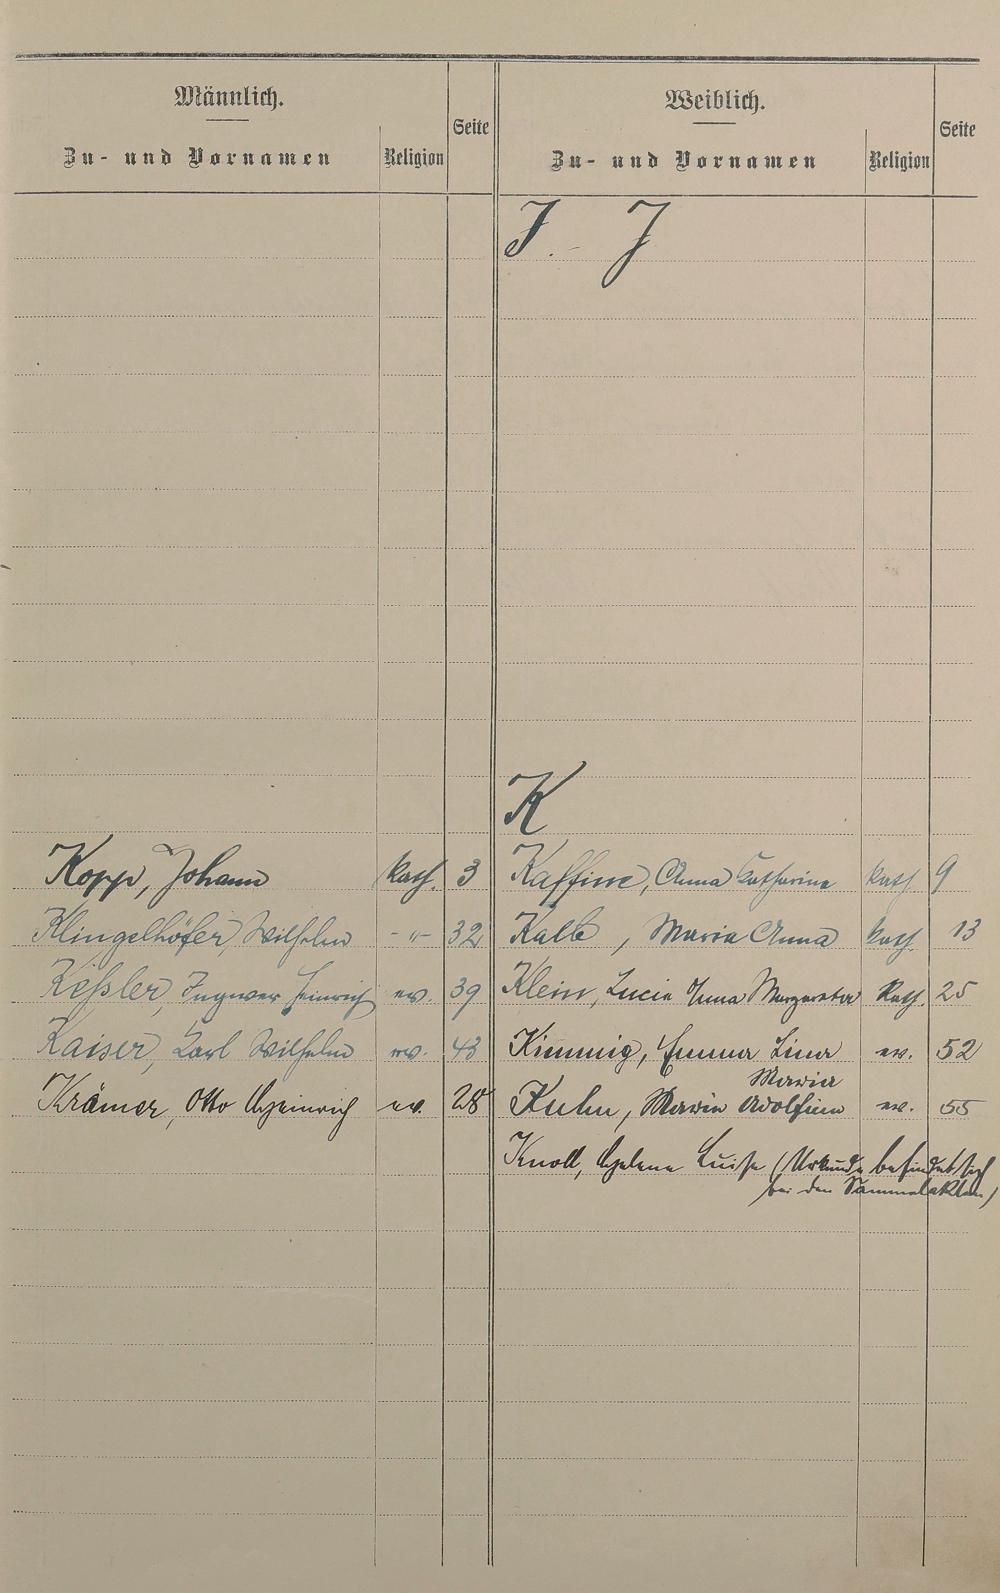 Männlich.
Zu- und Vornamen Religion Seite
Weiblich.
Zu- und Vornamen Religion Seite
I. J
K
Kopp, Johann kath. 3
Klingelhöfer, Wilhelm -"- 32
Keßler, Ingwer Heinrich ev. 39
Kaiser, Karl Wilhelm ev. 43
Krämer, Otto Heinrich ev. 28
Kaffine, Anna Katharina kath. 9
Kalb, Maria Anna kath. 13
Klein, Lucia Anna Margareta Kath. 25
Kimmig, Emma Lina ev. 52
Maria
Kuhn, Maria Adolfine ev. 55
Knoll, Helena Luise (Urkunde befindet sich
bei den Sammelakten)